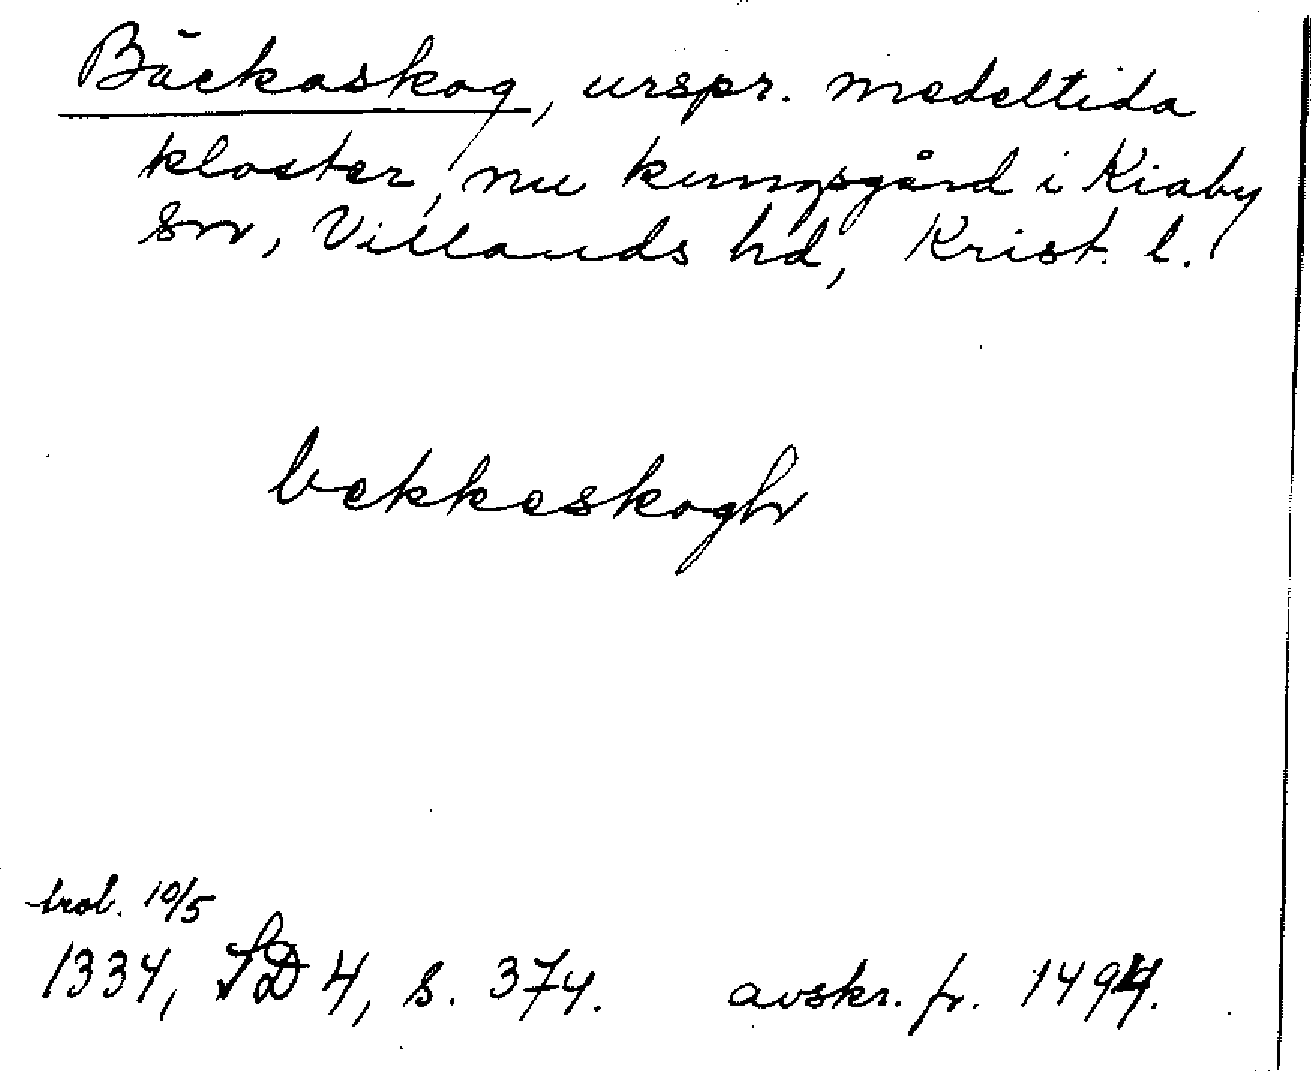 Bäckaskog, urspr. medeltida
kloster, nu kungsgård i Kiaby
sn, Villands hd, Krist. l.
bekkeskogh
trol. 10/5
1334, SD 4, s. 374. avskr. fr. 1494.